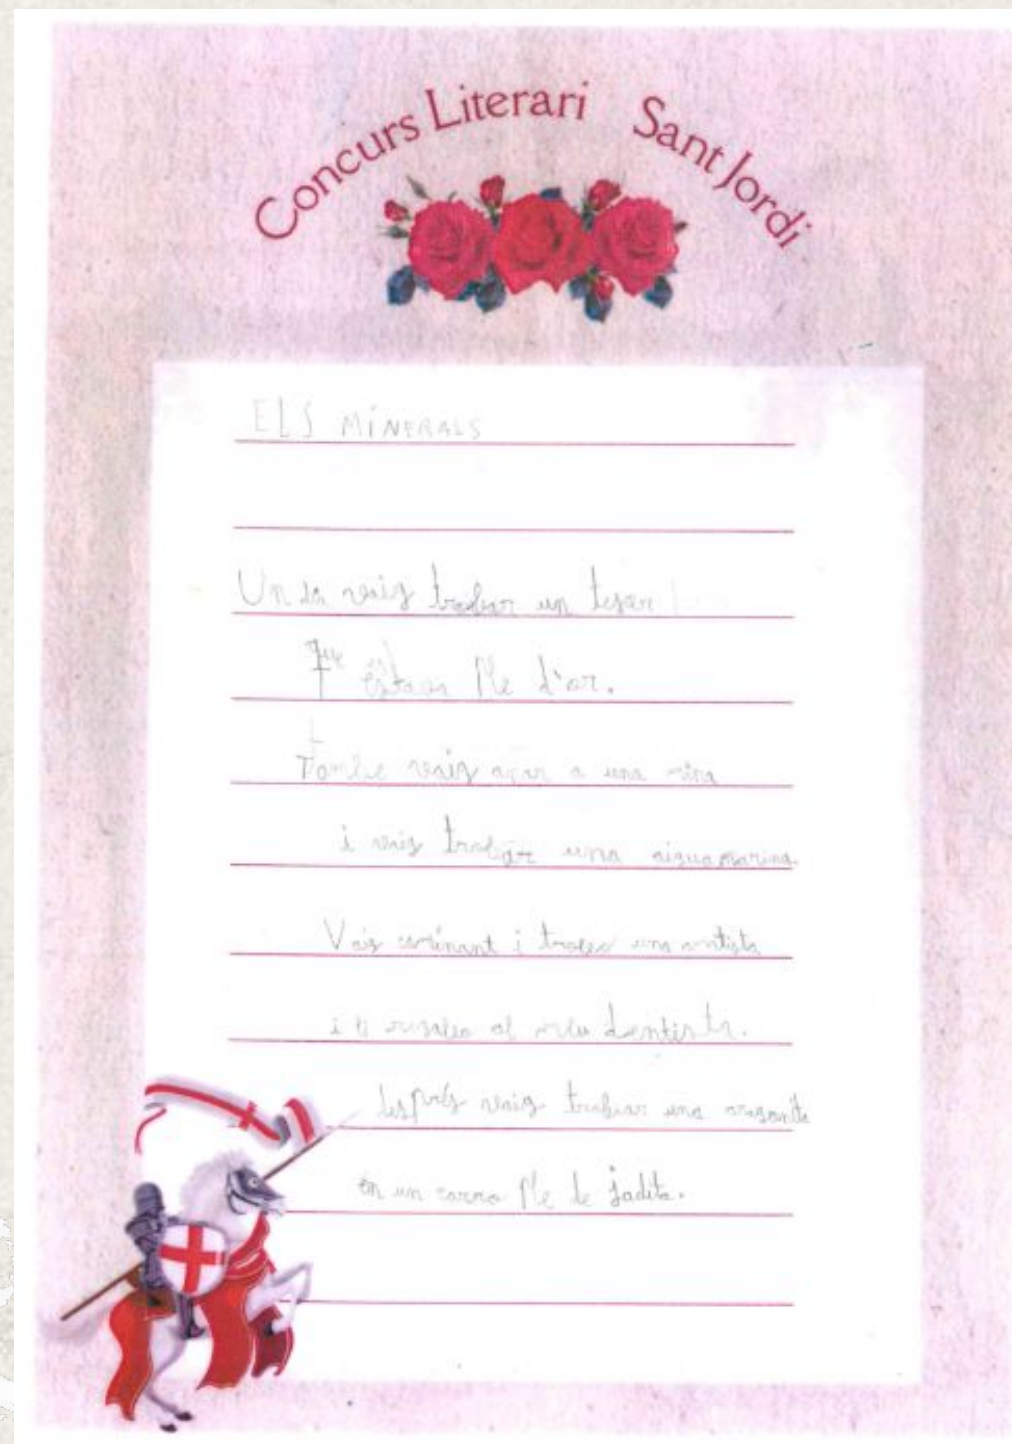 Concurs Literari Sant Jordi
ELS MINERALS
Un dia vaig trobar un tesor
que estava ple d'or.
Tambe vaig anar a una mina
i vaig trobar una aiguamarina.
Vaig caminant i trobo una
i li regalo al meu dentista.
després vaig trobar una
en un carro ple de jadita.